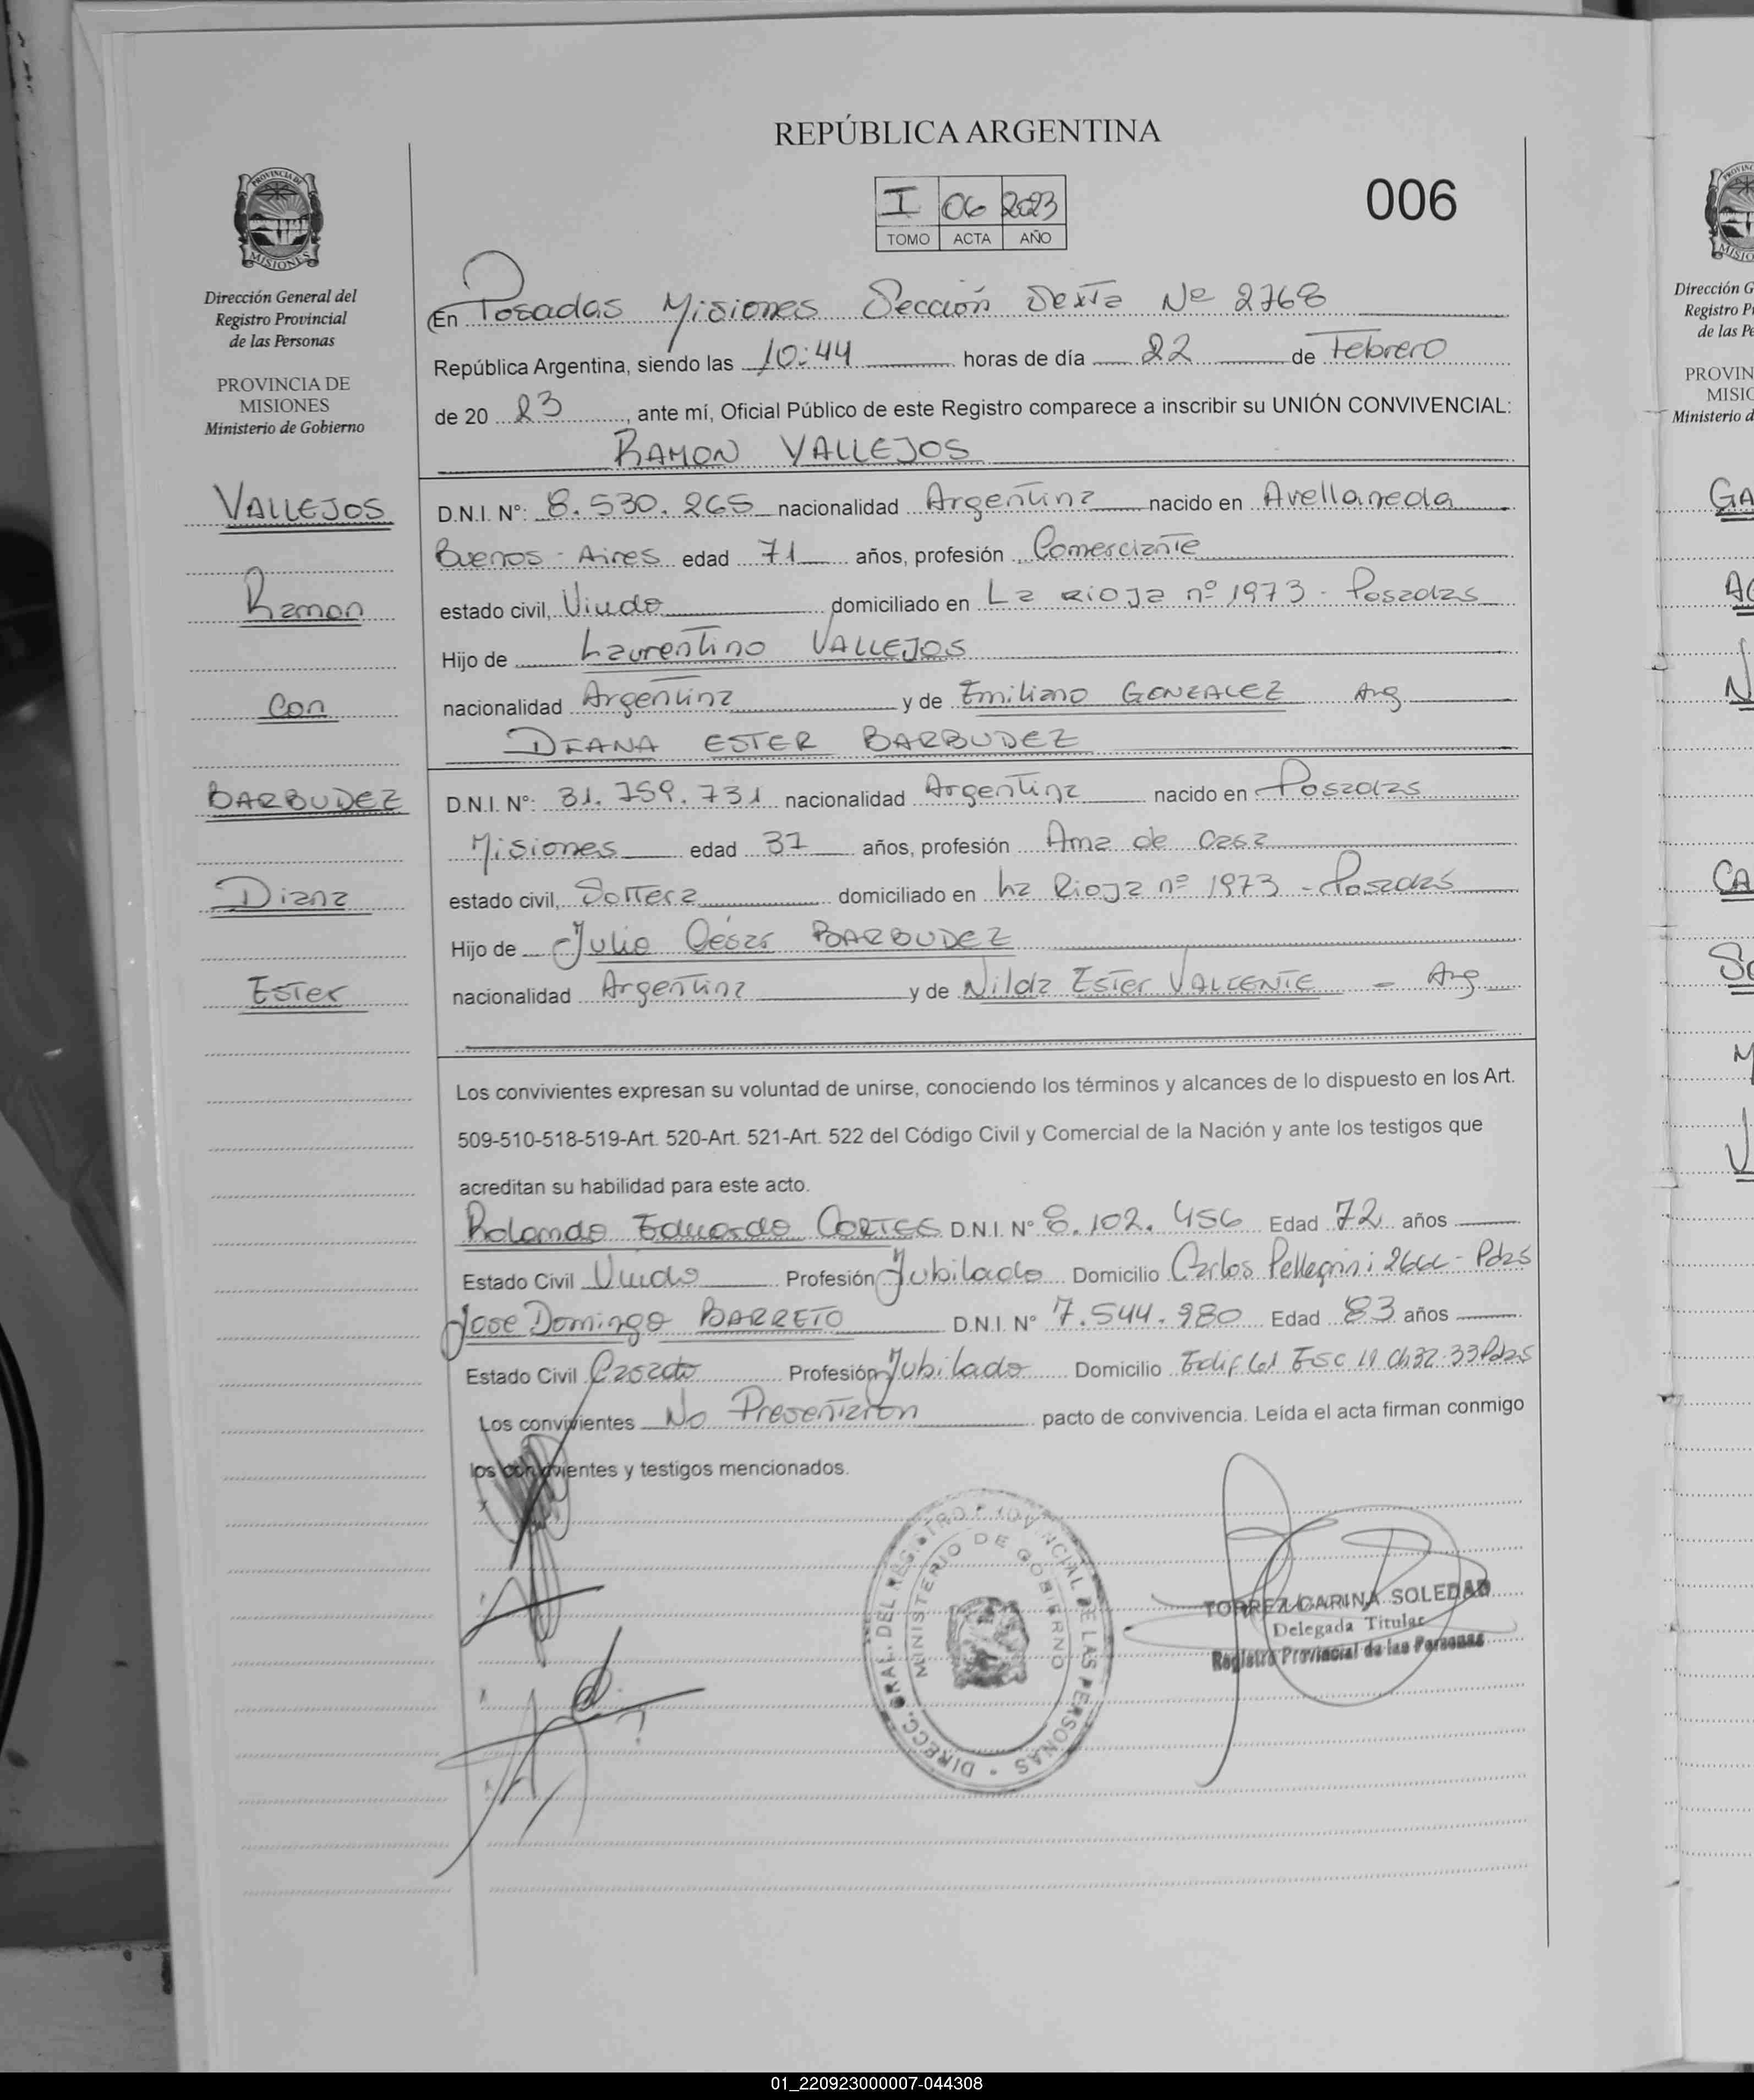 REPÚBLICA ARGENTINA
006
I 06 2023
TOMO ACTA AÑO
Dirección General del
Registro Provincial
de las Personas
PROVINCIA DE
MISIONES
Ministerio de Gobierno
VALLEJOS
Ramon
Con
BARBUDEZ
Diana
Ester
En Posadas Misiones Sección Sexta Nº 2768
República Argentina, siendo las 10:44 horas de día 22 de Febrero
de 20 23, ante mí, Oficial Público de este Registro comparece a inscribir su UNIÓN CONVIVENCIAL:
RAMON VALLEJOS
D.N.I. N°: 8.530.265 nacionalidad Argentina nacido en Avellaneda
Buenos-Aires edad 71 años, profesión Comerciante
estado civil, Viudo domiciliado en La Rioja nº 1973 - Posadas
Hijo de Laurentino VALLEJOS
nacionalidad Argentina y de Emiliano GONZALEZ Arg
DIANA ESTER BARBUDEZ
D.N.I. N°: 31.759.731 nacionalidad Argentina nacido en Posadas
Misiones edad 37 años, profesión Ama de casa
estado civil, Soltera domiciliado en La Rioja nº 1973 - Posadas
Hijo de Julio César BARBUDEZ
nacionalidad Argentina y de Nilda Ester VALIENTE - Arg
Los convivientes expresan su voluntad de unirse, conociendo los términos y alcances de lo dispuesto en los Art.
509-510-518-519-Art. 520-Art. 521-Art. 522 del Código Civil y Comercial de la Nación y ante los testigos que
acreditan su habilidad para este acto.
Rolando Eduardo CORTES D.N.I. N° 8.102.456 Edad 72 años
Estado Civil Viudo Profesión Jubilado Domicilio Carlos Pellegrini 2666 - Pdas
Jose Domingo BARRETO D.N.I. N° 7.544.980 Edad 83 años
Estado Civil Casado Profesión Jubilado Domicilio Edif Esc 19 Ch 32-33 Pdas
Los convivientes No Presentaron pacto de convivencia. Leída el acta firman conmigo
los convivientes y testigos mencionados.
DIRECC. GRAL. DEL REGISTRO PROVINCIAL DE LAS PERSONAS
MINISTERIO DE GOBIERNO
TORREZ CARINA SOLEDAD
Delegada Titular
Registro Provincial de las Personas
01_220923000007-044308